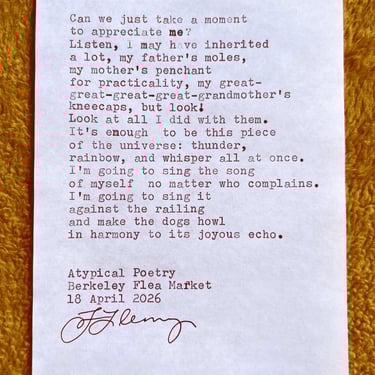 Can we just take a moment
to appreciate me?
Listen, I may have inherited
a lot, my father's moles,
my mother's penchant
for practicality, my great-
great-great-great-grandmother's
kneecaps, but look!
Look at all I did with them.
It's enough to be this piece
of the universe: thunder,
rainbow, and whisper all at once.
I'm going to sing the song
of myself no matter who complains.
I'm going to sing it
against the railing
and make the dogs howl
in harmony to its joyous echo.
Atypical Poetry
Berkeley Flea Market
18 April 2026